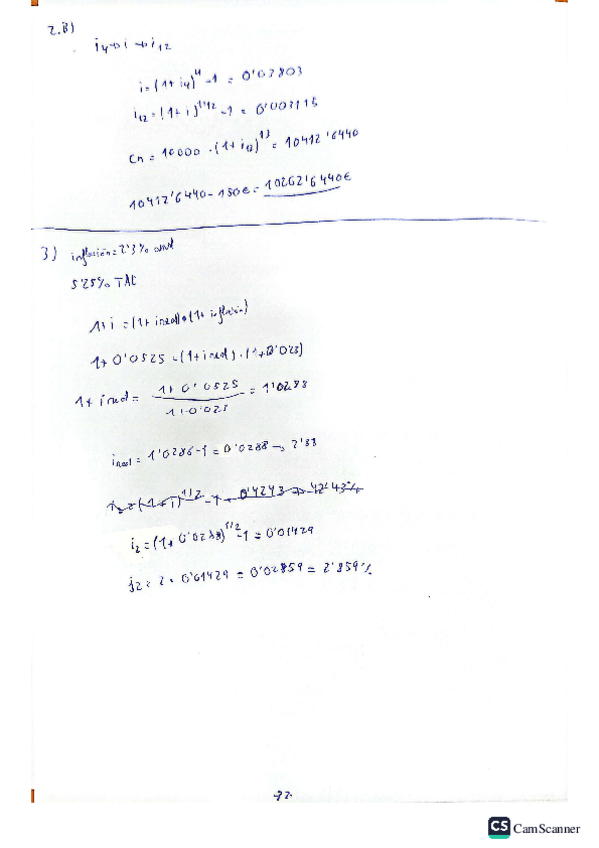 2.B)
i4→i→i12
i=(1+i4)^4-1 = 0'03803
i12=(1+i)^1/12 -1 = 0'003115
Cn = 10000 · (1+i12)^13 = 10412'6440
10412'6440 - 150€ = 10262'6440€
3) inflasión=2'3% anual
5'25% TAE
1+i = (1+ireal)·(1+inflasión)
1+0'0525 = (1+ireal)·(1+0'023)
1+ireal = 1+0'0525 / 1+0'023 = 1'0288
ireal = 1'0286-1 = 0'0288 → 2'88
i2=(1+i)^1/2 -1 = 0'4243 → 42'43%
i2=(1+0'0288)^1/2 -1 = 0'01429
j2 = 2 · 0'01429 = 0'02859 = 2'859%
CS CamScanner